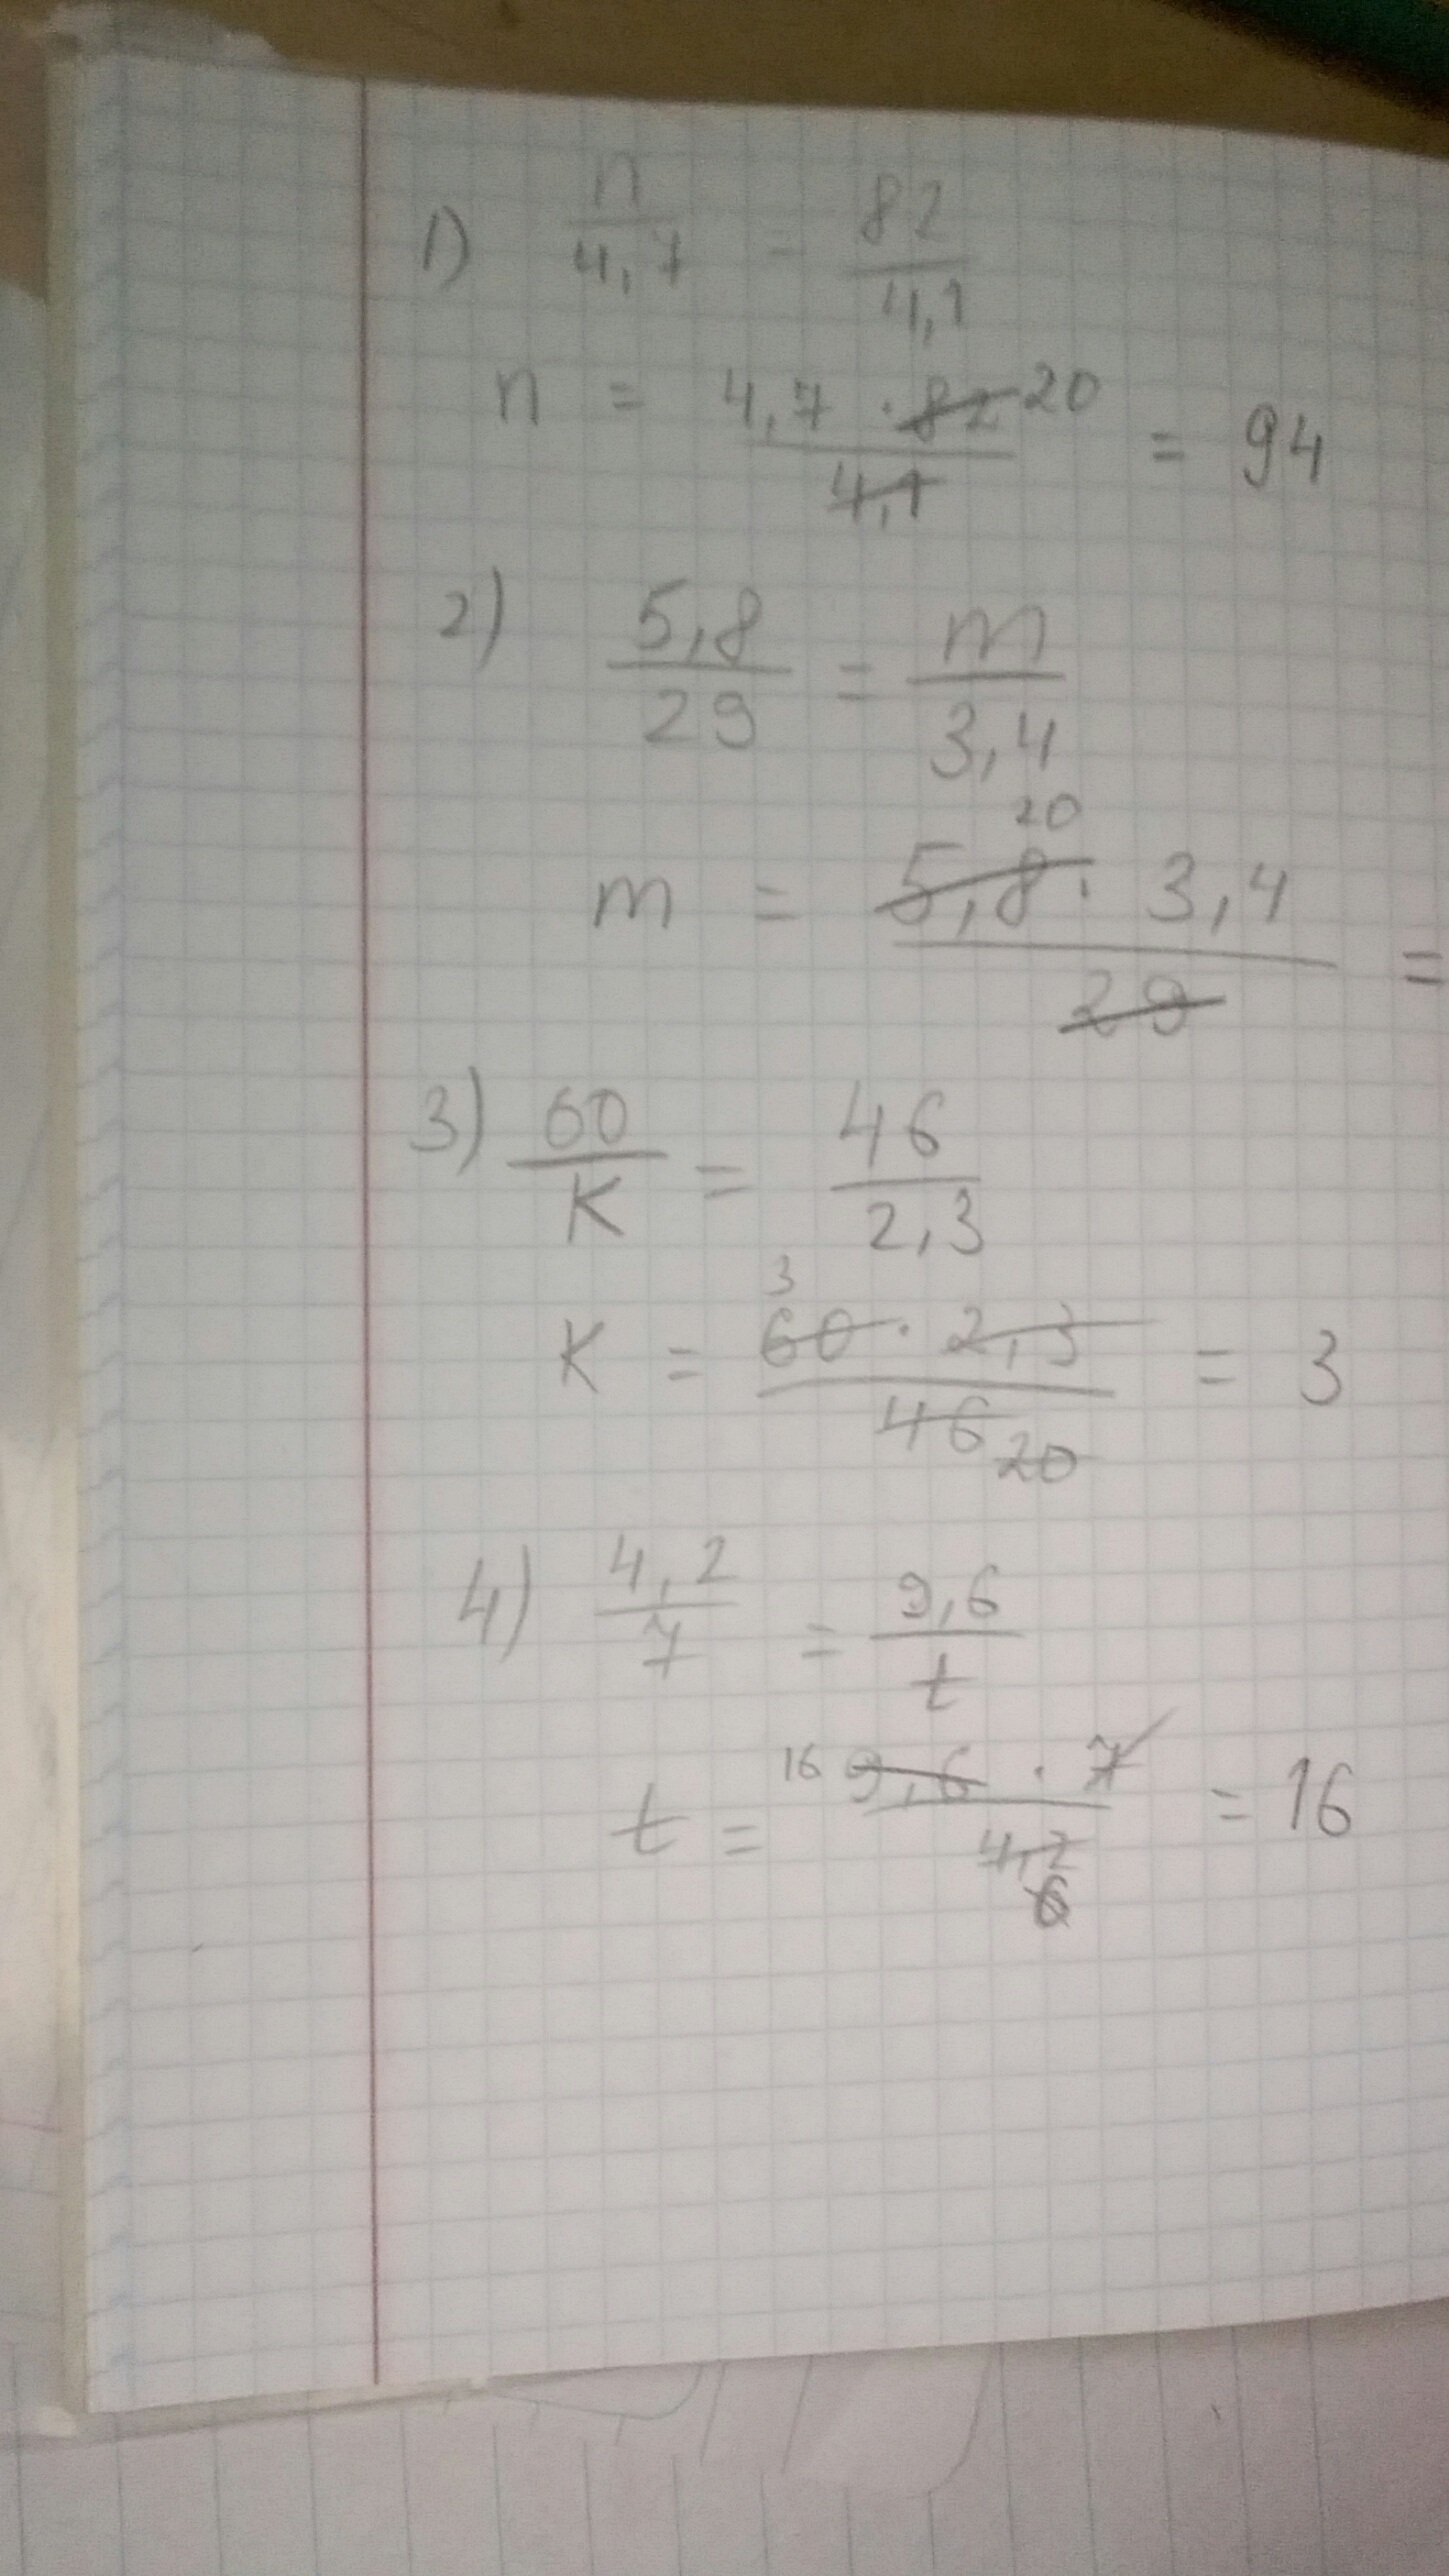 1) n/4,7 = 82/4,1
n = 4,7 · 82 20 / 4,1 = 94
2) 5,8/29 = m/3,4
m = 20 5,8 · 3,4 / 29 =
3) 60/K = 46/2,3
K = 3 60 · 2,3 / 46 20 = 3
4) 4,2/7 = 9,6/t
t = 16 9,6 · 7 / 4,2 6 = 16